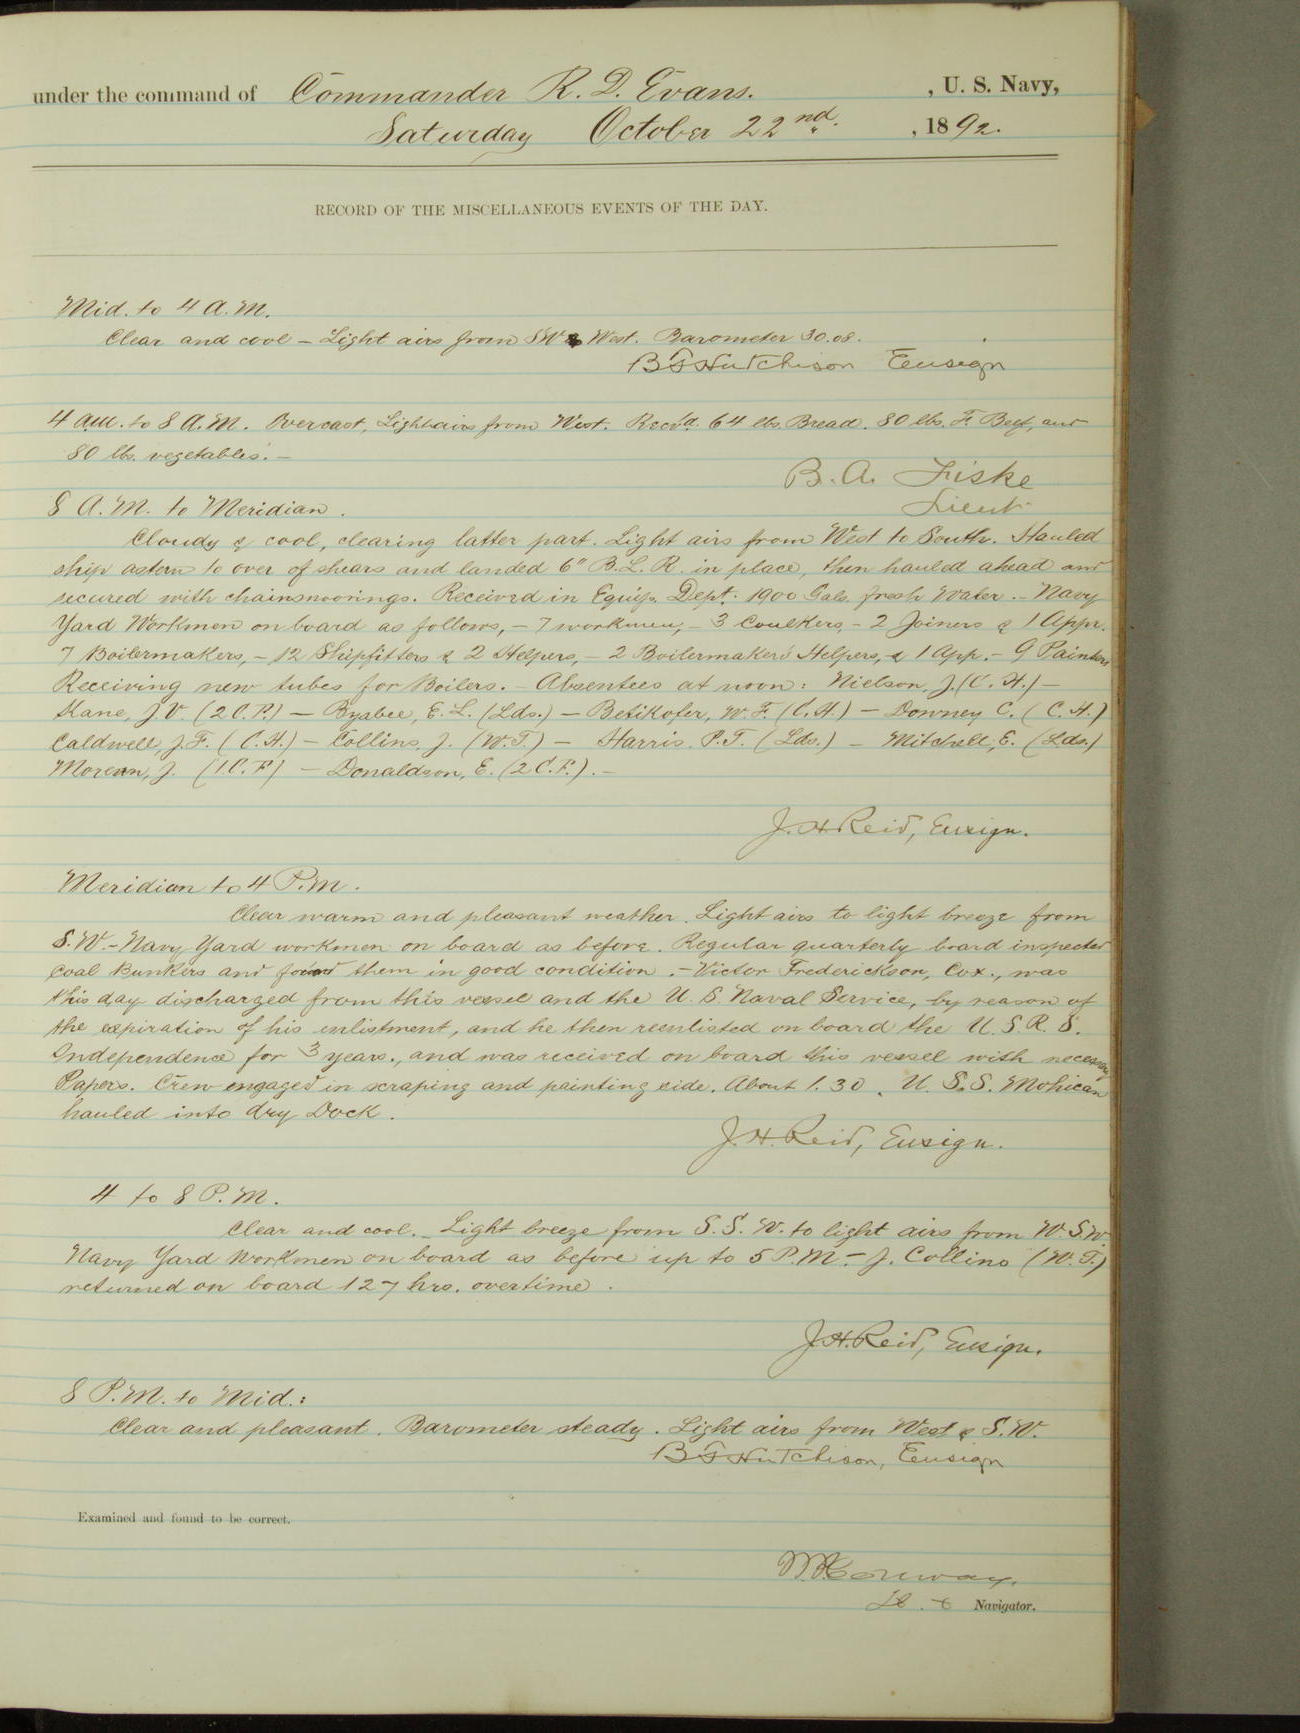 under the command of Commander R. D. Evans. , U. S. Navy,
Saturday October 22nd. , 1892.
RECORD OF THE MISCELLANEOUS EVENTS OF THE DAY.
Mid. to 4 A.M.
Clear and cool – Light airs from SW & West. Barometer 30.08.
B F Hutchison Ensign
4 a.m. to 8 A.M. Overcast, Light airs from West. Recv'd. 64 lbs. Bread. 80 lbs. F. Beef, and
80 lbs. vegetables. –
B. A. Fiske
Lieut
8 A.M. to Meridian.
Cloudy & cool, clearing latter part. Light airs from West to South. Hauled
ship astern to over of shears and landed 6" B.L.R. in place, then hauled ahead and
secured with chainsmoorings. Received in Equip. Dept. 1900 Gals. fresh Water. – Navy
Yard Workmen on board as follows, – 7 workmen, – 3 Coulkers, – 2 Joiners & 1 Appr.
7 Boilermakers, – 12 Shipfitters & 2 Helpers, – 2 Boilermakers' Helpers, & 1 App. – 9 Painters
Receiving new tubes for Boilers. – Absentees at noon: Nielson, J. (C.H.) –
Kane, J.V. (2C.P.) – Byabee, E. L. (Lds.) – Betikofer, W. F. (C.H.) – Downey C. (C.H.)
Caldwell, J.F. (C.H.) – Collins, J. (W.T.) – Harris. P.T. (Lds.) – Mitchell, E. (Lds.)
J. (1C.F.) – Donaldson, E. (2C.F.). –
J. H. Reid, Ensign.
Meridian to 4 P.M.
Clear warm and pleasant weather. Light airs to light breeze from
S.W. – Navy Yard workmen on board as before. Regular quarterly board inspected
Coal Bunkers and found them in good condition. – Victor Frederickson, Cox., was
this day discharged from this vessel and the U. S. Naval Service, by reason of
the expiration of his enlistment, and he then reenlisted on board the U. S. R. S.
Independence for 3 years., and was received on board this vessel with necessary
Papers. Crew engaged in scraping and painting side. About 1.30. U. S. S. Mohican
hauled into dry Dock.
J. H. Reid, Ensign.
4 to 8 P.M.
Clear and cool. – Light breeze from S. S. W. to light airs from W. S. W.
Navy Yard Workmen on board as before up to 5 P.M. – J. Collins (W.T.)
returned on board 127 hrs. overtime.
J. H. Reid, Ensign.
8 P.M. to Mid.:
Clear and pleasant. Barometer steady. Light airs from West & S.W.
B F Hutchison, Ensign
Examined and found to be correct.
Conway.
Navigator.